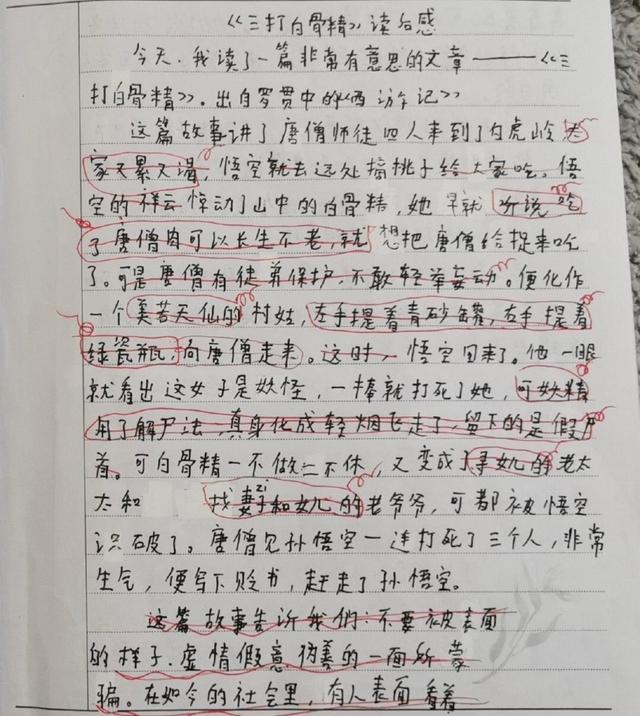 《三打白骨精》读后感
今天，我读了一篇非常有意思的文章——《三
打白骨精》。出自罗贯中的《西游记》
这篇故事讲了唐僧师徒四人来到了白虎岭，大
家又累又渴，悟空就去远处摘桃子给大家吃。悟
空的祥云惊动了山中的白骨精，她早就听说吃
了唐僧肉可以长生不老，就想把唐僧给捉来吃
了。可是唐僧有徒弟保护，不敢轻举妄动。便化作
一个美若天仙的村姑，左手提着青砂罐，右手提着
绿瓷瓶，向唐僧走来。这时，悟空回来了。他一眼
就看出这女子是妖怪，一棒就打死了她，可妖精
用了解尸法，真身化成轻烟飞走了，留下的是假尸
首。可白骨精一不做二不休，又变成了寻女儿的老太
太和 找妻子zi和女儿的老爷爷，可都被悟空
识破了。唐僧见孙悟空一连打死了三个人，非常
生气，便写下贬书，赶走了孙悟空。
这篇故事告诉我们：不要被表面
的样子，虚情假意伪善的一面所蒙
骗。在如今的社会里，有人表面看着